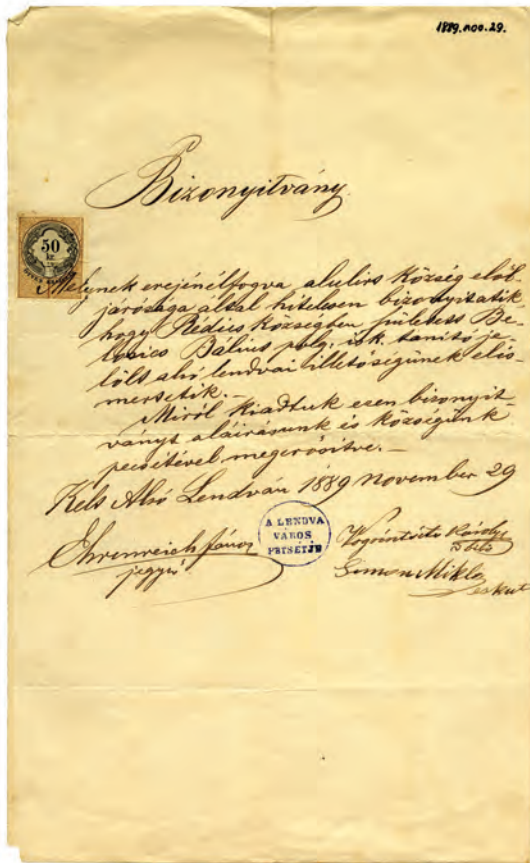 1889. nov. 29.
Bizonyitvány
50
kr.
Melynek erejénélfogva alulirt község elöl-
járósága által hitelesen bizonyitatik
hogy Rédics községben születess Be-
losics Bálius polg. isk. tanitó je-
lölt alsó lendvai illetőségünek elis-
mersetik.-
Miről kiadtuk ezen bizonyit
ványt aláirásunk és községünk
pecsétével megerősitve.-
Kelt Alsó Lendván 1889 November 29
A LENDVA
VÁROS
PETSETJE
Ehrenreich János
jegyző
Károly
Simon Miklos
eskut